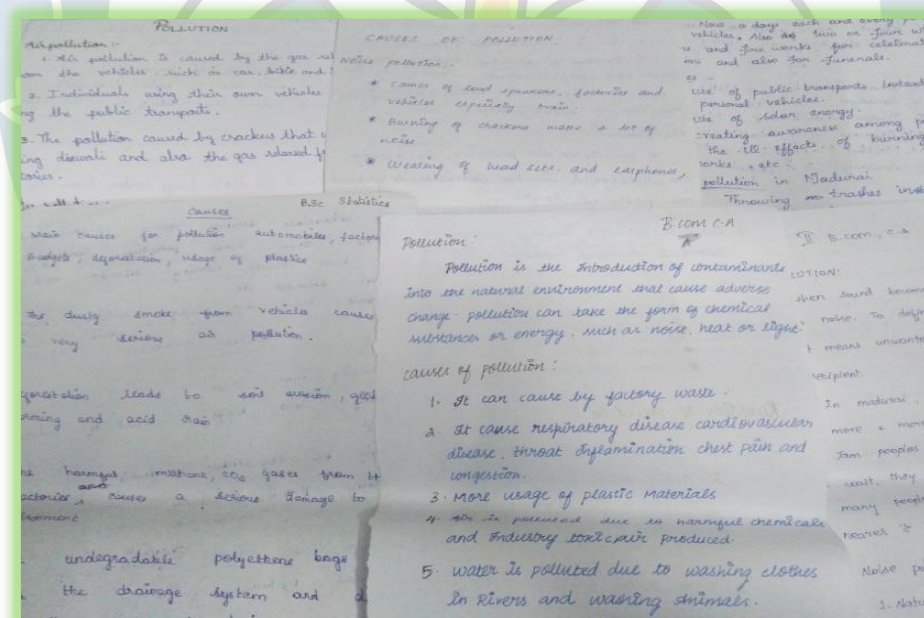 POLLUTION
Air pollution :-
1. Air pollution is caused by the gas
the vehicles such as car, bike and
2. Individuals using their own vehicles
the public transports.
3. The pollution caused by crackers that
diwali and also the gas
CAUSES OF POLLUTION
Noise pollution :-
* Causes of loud speakers, factories and
vehicles especially train.
* Burning of crackers makes a lot of
noise
* Wearing of head sets and earphones,
Now a days each and every
vehicles. Also two or four
and fire works for
and also for funerals.
use of public transports
personal vehicles.
use of solar energy.
creating awareness among
the ill effects of burning
etc
pollution in Madurai
Throwing trashes
BSc Statistics
Causes
Main causes for pollution automobiles,
Gadgets, deforestation, usage of plastic
dusty smoke from vehicle causes
very serious air pollution.
leads to soil erosion,
and acid rain
harmful, methane, gases from
causes a serious damage to
undegradable polyethene bags
the drainage system and
B.com C.A
Pollution:
Pollution is the introduction of contaminants
into the natural environment that cause adverse
change. pollution can take the form of chemical
substances or energy, such as noise, heat or light.
causes of pollution :
1. It can cause by factory waste.
2. It cause respiratory disease cardiovascular
disease, throat inflamination chest pain and
congestion.
3. More usage of plastic Materials
4. Air is polluted due to harmful chemicals
and Industry toxic air produced.
5. water is polluted due to washing clothes
in Rivers and washing animals.
II B.com., C.A
when sound
noise. To
means
recipient.
In madurai,
more & more
Jam peoples
wait, they
many
nearer
Noise
1.